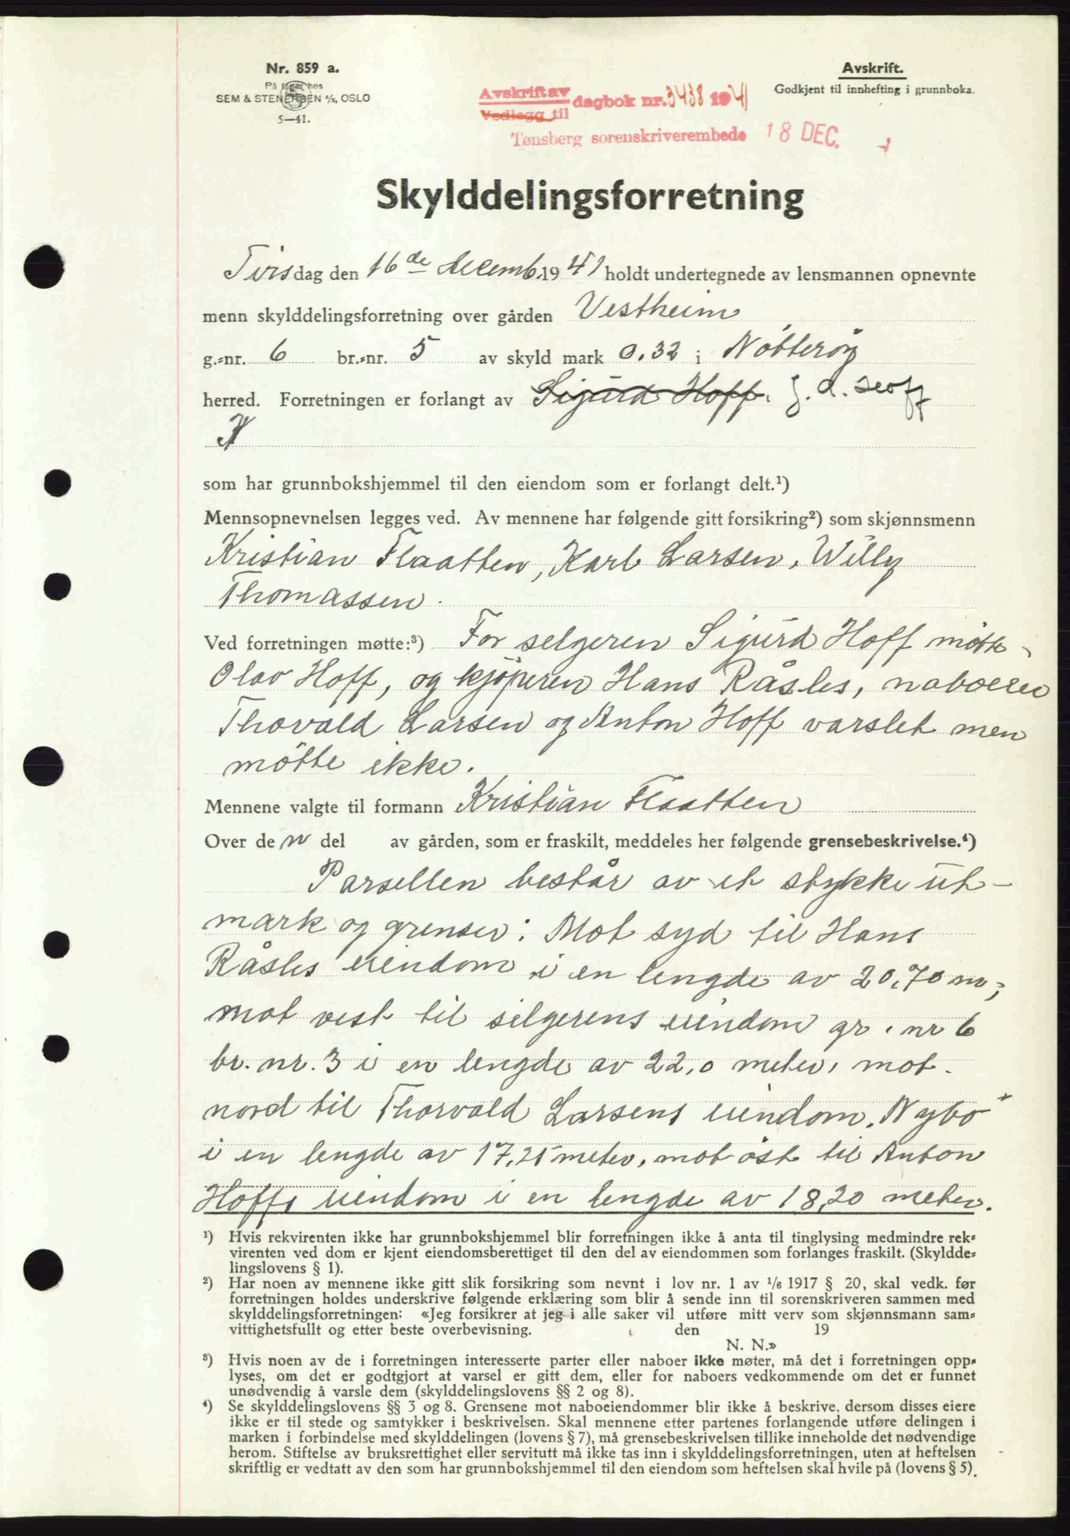 Nr. 859 a.
På lager hos
SEM & STENERSEN A/S, OSLO
5—41.
Avskrift av
Vedlegg til
dagbok nr. 3438 1941
Tønsberg sorenskriverembede
18 DEC.
Avskrift.
Godkjent til innhefting i grunnboka.
Skylddelingsforretning
Tirsdag den 16de decemb. 1941 holdt undertegnede av lensmannen opnevnte
menn skylddelingsforretning over gården Vestheim
g.-nr. 6 br.-nr. 5 av skyld mark 0.32 i Nötterøy
herred. Forretningen er forlangt av Sigurd Hoff.
som har grunnbokshjemmel til den eiendom som er forlangt delt.¹)
Mennsopnevnelsen legges ved. Av mennene har følgende gitt forsikring²) som skjønnsmenn
Kristian Flaatten, Karl Larsen, Willy
Thomassen.
Ved forretningen møtte:³) For selgeren Sigurd Hoff møtte
Olav Hoff, og kjöperen Hans Råsles, naboene
Thorvald Larsen og Anton Hoff varslet men
mötte ikke.
Mennene valgte til formann Kristian Flaatten
Over den del av gården, som er fraskilt, meddeles her følgende grensebeskrivelse.⁴)
Parsellen består av et stykke ut-
mark og grenser: Mot syd til Hans
Råsles eiendom i en lengde av 20,70 m;
mot vest til selgerens eiendom gr. nr 6
br. nr. 3 i en lengde av 22,0 meter, mot
nord til Thorvald Larsens eiendom "Nybo"
i en lengde av 17,25 meter, mot öst til Anton
Hoffs eiendom i en lengde av 18,20 meter.
¹) Hvis rekvirenten ikke har grunnbokshjemmel blir forretningen ikke å anta til tinglysing medmindre rek-
virenten ved dom er kjent eiendomsberettiget til den del av eiendommen som forlanges fraskilt. (Skyldde-
lingslovens § 1).
²) Har noen av mennene ikke gitt slik forsikring som nevnt i lov nr. 1 av 1/6 1917 § 20, skal vedk. før
forretningen holdes underskrive følgende erklæring som blir å sende inn til sorenskriveren sammen med
skylddelingsforretningen: «Jeg forsikrer at jeg i alle saker vil utføre mitt verv som skjønnsmann sam-
vittighetsfullt og etter beste overbevisning. den 19
N. N.»
³) Hvis noen av de i forretningen interesserte parter eller naboer ikke møter, må det i forretningen opp-
lyses, om det er godtgjort at varsel er gitt dem, eller for naboers vedkommende om det er funnet
unødvendig å varsle dem (skylddelingslovens §§ 2 og 8).
⁴) Se skylddelingslovens §§ 3 og 8. Grensene mot naboeiendommer blir ikke å beskrive, dersom disses eiere
ikke er til stede og samtykker i beskrivelsen. Skal mennene etter partenes forlangende utføre delingen i
marken i forbindelse med skylddelingen (lovens § 7), må grensebeskrivelsen tillike inneholde det nødvendige
herom. Stiftelse av bruksrettighet eller servitutt må ikke tas inn i skylddelingsforretningen, uten at heftelsen
skriftlig er vedtatt av den som har grunnbokshjemmel til den eiendom som heftelsen skal hvile på (lovens § 5).